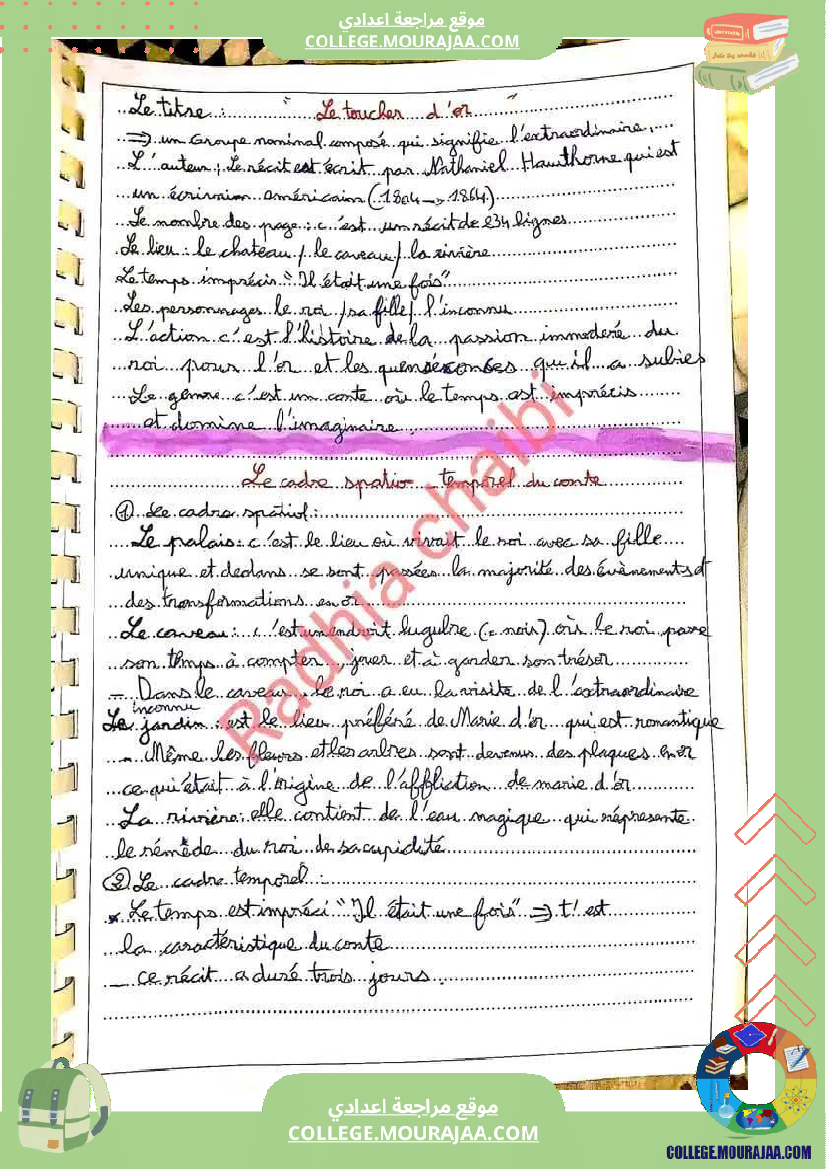 موقع مراجعة اعدادي
COLLEGE.MOURAJAA.COM
Le titre : " Le toucher d'or "
=> un Groupe nominal composé qui signifie l'extraordinaire.
L'auteur : Le récit est écrit par Nathaniel Hawthorne qui est
un écrivain américain (1804 -> 1864)
Le nombre des page : c'est un récit de 234 lignes
Le lieu : le chateau / le caveau / la rivière
Le temps imprécis "Il était une fois"
Les personnages le roi / sa fille / l'inconnu
L'action c'est l'histoire de la passion immoderé du
roi pour l'or et les qu'il a subies
Le genre c'est un conte où le temps est imprécis
et domine l'imaginaire.
Le cadre spatio - temporel du conte
① Le cadre spatiol :
Le palais : c'est le lieu où vivait le roi avec sa fille
unique et dedans se sont passées la majorité des évènements et
des transformations en or
Le caveau : c'est un endroit lugubre (= noir) où le roi passe
son temps à compter, jouer et à garder son trésor
- Dans le caveau le roi a eu la visite de l'extraordinaire
inconnu
Le jardin : est le lieu préféré de Marie d'or qui est romantique
- Même les fleurs et les arbres sont devenus des plaques en or
ce qu'était à l'origine de l'affliction de marie d'or
La rivière : elle contient de l'eau magique qui réprésente
le rémède du roi de sa cupidité
② Le cadre temporel :
* Le temps est impréci "Il était une fois" => t! est
la caractéristique du conte
- ce récit a duré trois jours.
Radhia chaibi
موقع مراجعة اعدادي
COLLEGE.MOURAJAA.COM
COLLEGE.MOURAJAA.COM